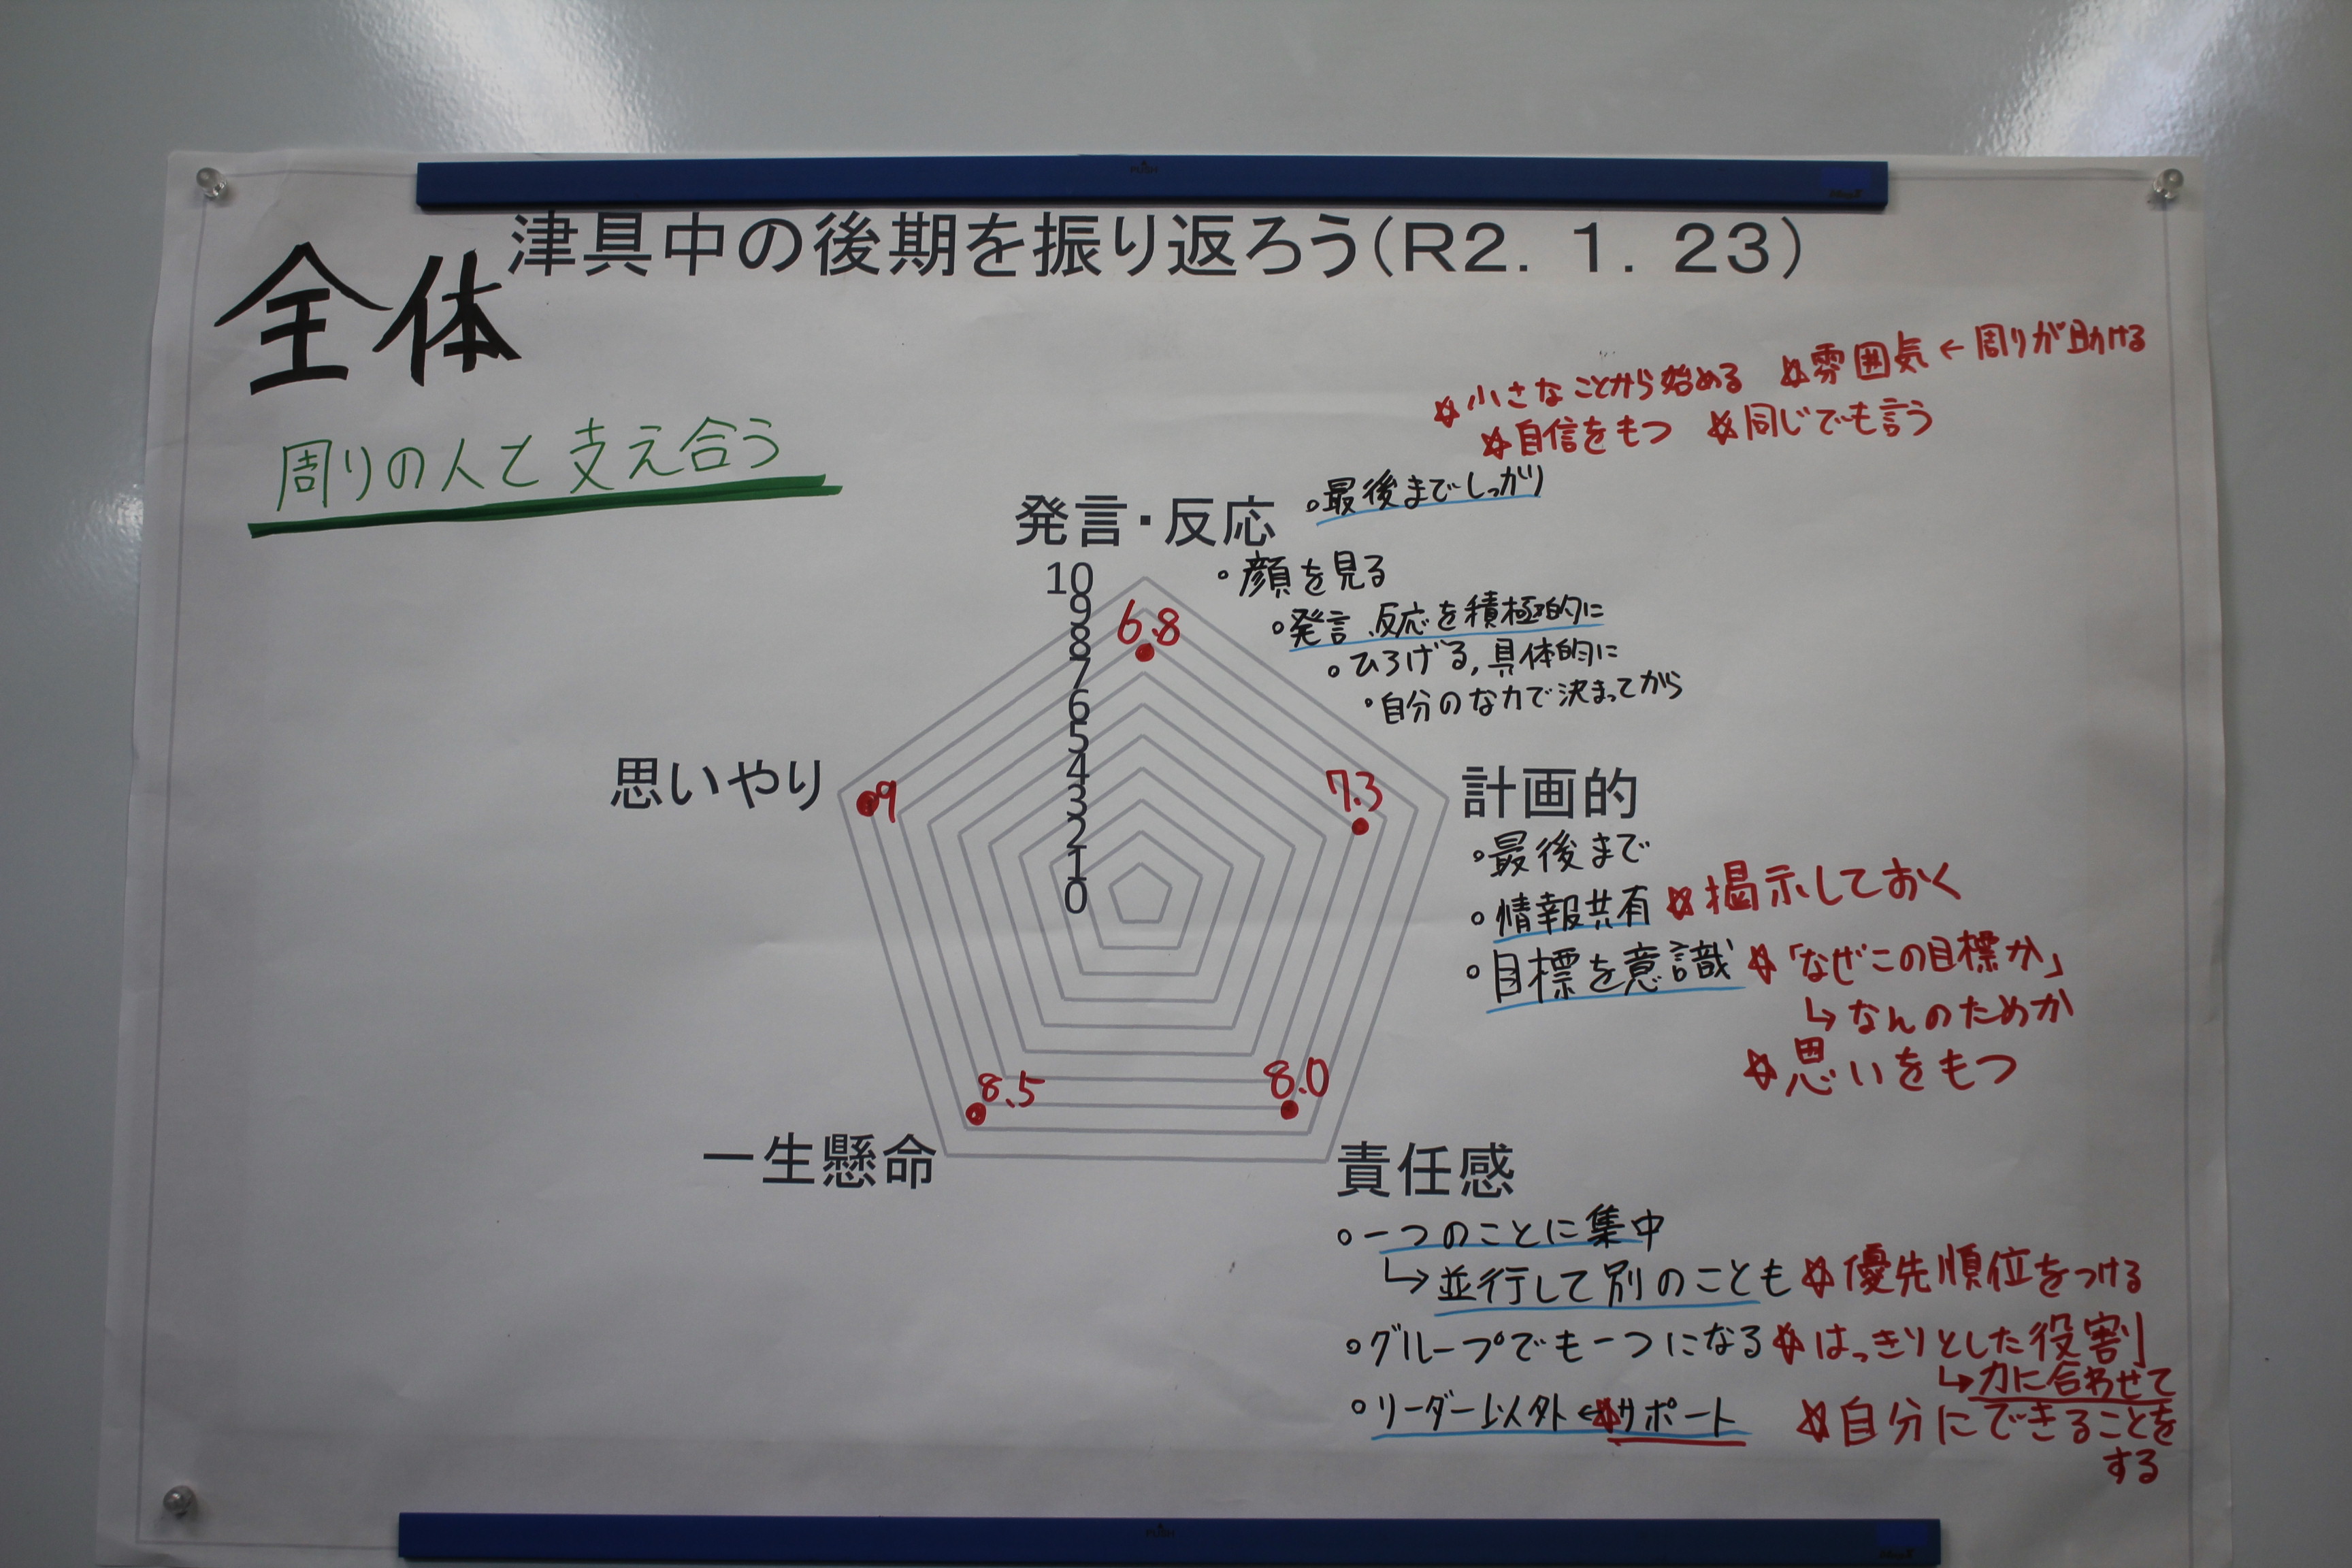 津具中の後期を振り返ろう(R2. 1. 23)
全体
周りの人と支え合う
☆小さなことから始める ☆雰囲気←周りが助ける
☆自信をもつ ☆同じでも言う
発言・反応
。最後までしっかり
。顔を見る
。発言、反応を積極的に
。ひろげる,具体的に
。自分のな力で決まってがら
10
9
8
7
6
5
4
3
2
1
0
6.8
思いやり
9
7.3
計画的
。最後まで
。情報共有 ☆掲示しておく
。目標を意識 ☆「なぜこの目標か」
↳なんのためか
☆思いをもつ
8.5
8.0
一生懸命
責任感
。一つのことに集中
↳並行して別のことも ☆優先順位をつける
。グループでも一つになる ☆はっきりとした役割
↳力に合わせて
。リーダー以外←☆サポート ☆自分にできることを
する
PUSH
PUSH